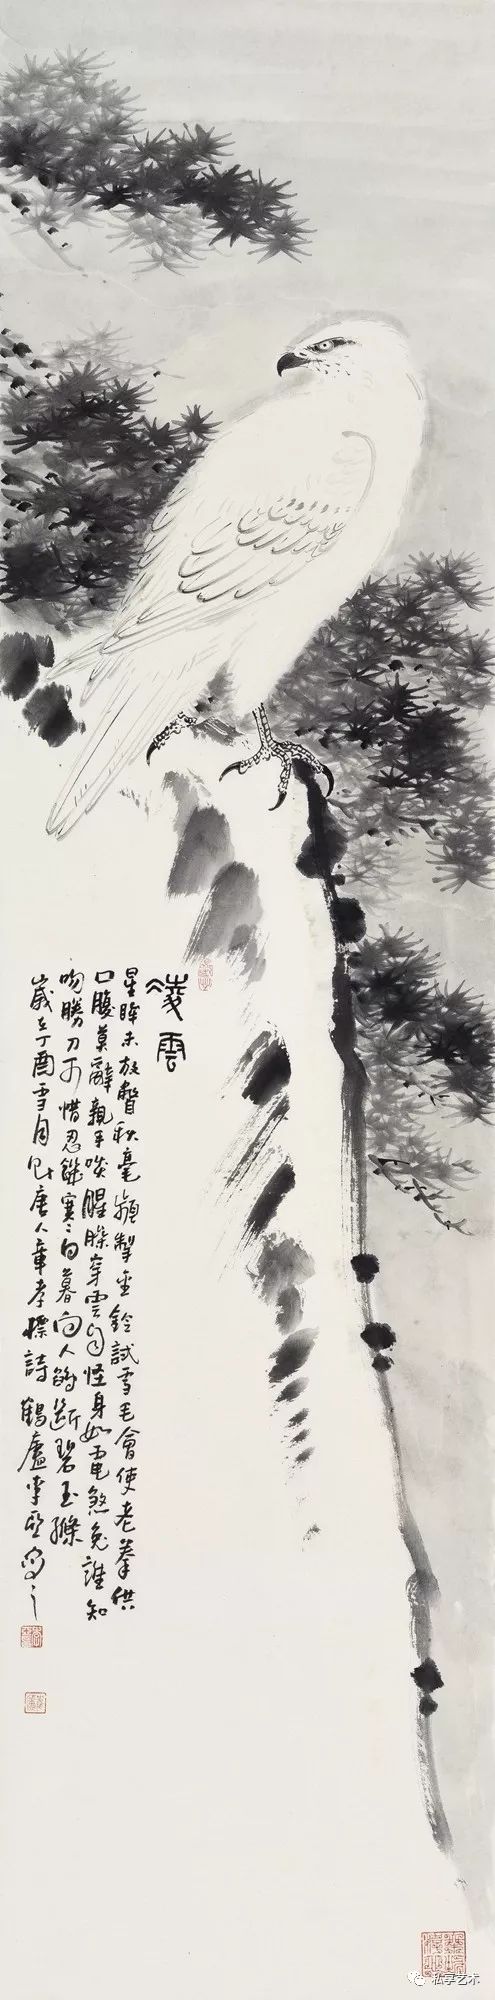 凌雲
星眸未放瞥秋毫頻掣金鈴試雪毛會使老拳供
口腹莫辭親手啖腥臊穿雲自怪身如電煞兔誰知
吻勝刀可惜忍飢寒日暮向人鵮斷碧玉絛
歲在丁酉雪月唐人章孝標詩鶴廬李亞寫之
私享艺术